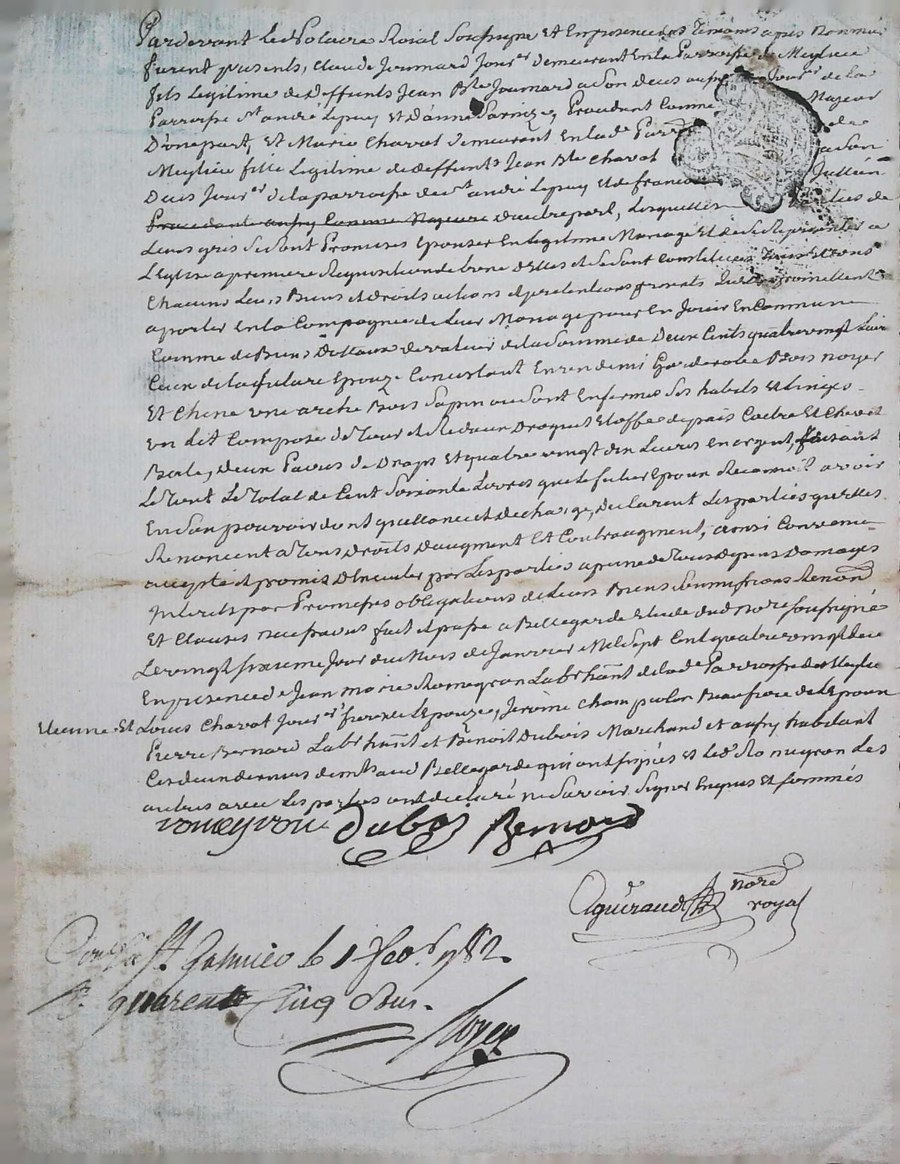 Pardevant Le Nottaire Roial Soussigné Et En presence des Temoins apres Nommés
furent presents, Claude Joumard Jour.er demeurant En la Parroisse de Meylieu
fils Legitime de deffunts Jean B.te Joumard a son Deces aussy Jour.er de la
Parroisse S.t andré Lepuy Et D'anne Parnize, Procedant Comme Majeur
D'unepart, Et Marie Charat demeurant En lad.e Parr.
Meylieu fille Legitime de deffunts Jean B.te Charat a son
Deces Jour.er de la parroisse de S.t andré Lepuy Et de francoise Jullien
Procedante aussy Comme Majeure d'autrepart, Lesquelles
Leurs gres Se Sont Promises Epouser En Legitime Mariage Et de Se Representer a
L'Eglise a premiere Requisition de L'une D'Elles et Se Sont Constitués Tous Et Uns
Chacuns Leurs Biens et droits actions et pretentions presents qu'elles Promettent
aporter En la Compagnie de Leur Mariage pour En Jouir En Commun
Comme de Biens Dotaux de valeur de la Somme de Deux Cents quatre vingt Livres
Ceux de la future Epouze Consistant En un demi Garderobe Bois noyer
Et Chene une arche Bois Sapin ou Sont Enfermés Ses habits Et Linges
un Lit Composé de Tour et de Rideaux Droguet Etoffe de païs Coëtre Et Chevet
Bale, deux Paires de Draps Et quatre vingt dix Livres En argent, faisant
Le Tout Le Total de Cent Soixante Livres que Le futur Epoux Reconnoît avoir
En Son pouvoir dont quittance et decharge, Declarent Les parties qu'elles
Renoncent a Tous Droits D'augment Et Contraugment, ainsi Convenu
accepté et promis D'Executer par Les parties a peine de Tous Depens Domages
Interets par Promesses obligations de Leurs Biens Soumissions Renon.on
Et Clauses Necessaires fait et passé a Bellegarde Etude dud. No.re Soussigné
Le vingt Sixieme Jour du Mois de Janvier Mil Sept Cent quatre vingt deux
En presence de Jean Marie Romeyron Lab.r hab.ant de lad.e Parroisse de Meylieu
Etienne Et Louis Charat Jour.ers freres de L'epouze, Jerome Champvolon Beaufrere de L'epoux
Pierre Bernard Lab.r hab.nt et Benoit Duboïs Marchand et aussy habitant
Ces deux derniers de Bellegarde qui ont signés et Led.t Romeyron Les
autres avec Les parties ont declaré ne Savoir Signer Enquis et Sommés
romeyron Duboÿ Bernard
Aguiraud no.re royal
Con.lé a S.t Galmier le 1 fev.r 1782.
R. quarente Cinq Sous.
Royer